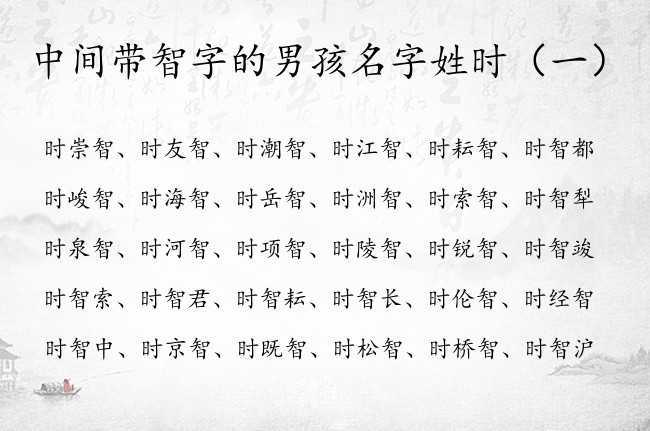 中间带智字的男孩名字姓时（一）
时崇智、时友智、时潮智、时江智、时耘智、时智都
时峻智、时海智、时岳智、时洲智、时索智、时智犁
时泉智、时河智、时项智、时陵智、时锐智、时智竣
时智索、时智君、时智耘、时智长、时伦智、时经智
时智中、时京智、时既智、时松智、时桥智、时智沪